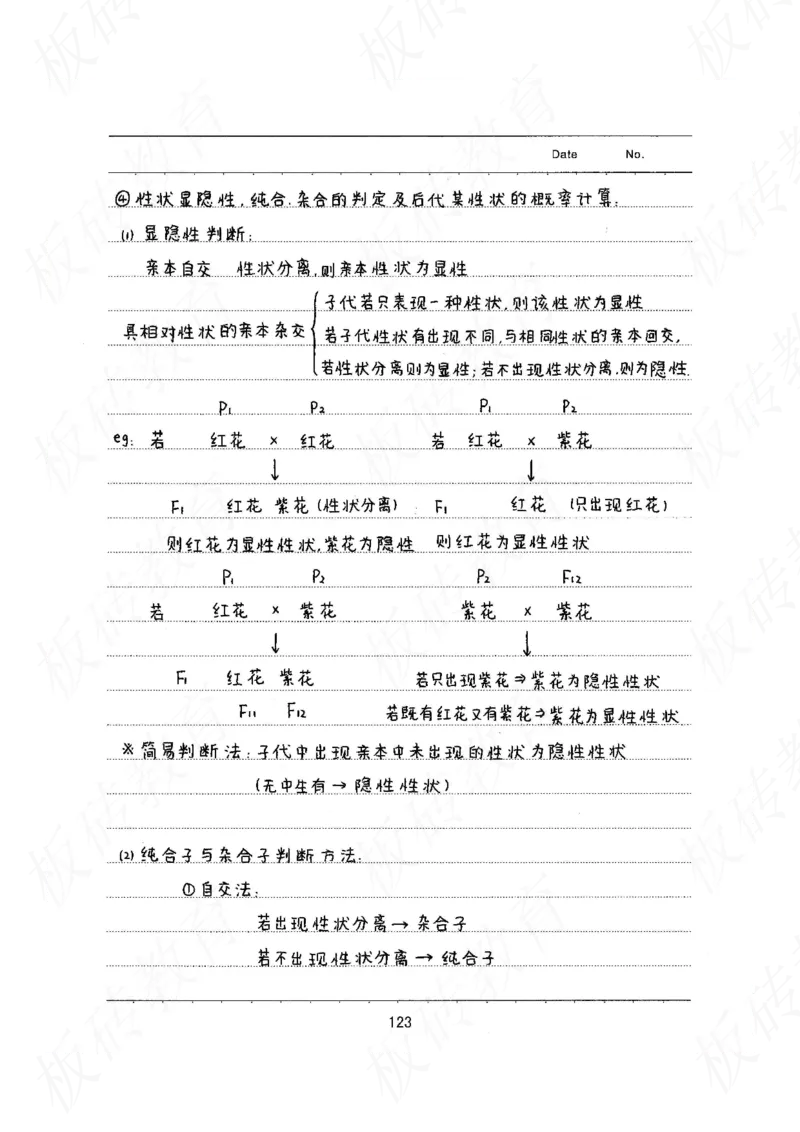 Date No.
④性状显隐性,纯合.杂合的判定及后代某性状的概率计算:
(1) 显隐性判断:
亲本自交 性状分离,则亲本性状为显性
子代若只表现一种性状,则该性状为显性
具相对性状的亲本杂交 若子代性状有出现不同,与相同性状的亲本回交,
若性状分离则为显性;若不出现性状分离,则为隐性.
P₁ P₂ P₁ P₂
eg: 若 红花 × 红花 若 红花 × 紫花
↓ ↓
F₁ 红花 紫花 (性状分离) F₁ 红花 (只出现红花)
则红花为显性性状,紫花为隐性 则红花为显性性状
P₁ P₂ P₂ F₁₂
若 红花 × 紫花 紫花 × 紫花
↓ ↓
F₁ 红花 紫花 若只出现紫花⇒紫花为隐性性状
F₁₁ F₁₂ 若既有红花又有紫花⇒紫花为显性性状
※简易判断法:子代中出现亲本中未出现的性状为隐性性状
(无中生有→隐性性状)
(2) 纯合子与杂合子判断方法:
①自交法:
若出现性状分离→杂合子
若不出现性状分离→纯合子
123
板砖教育